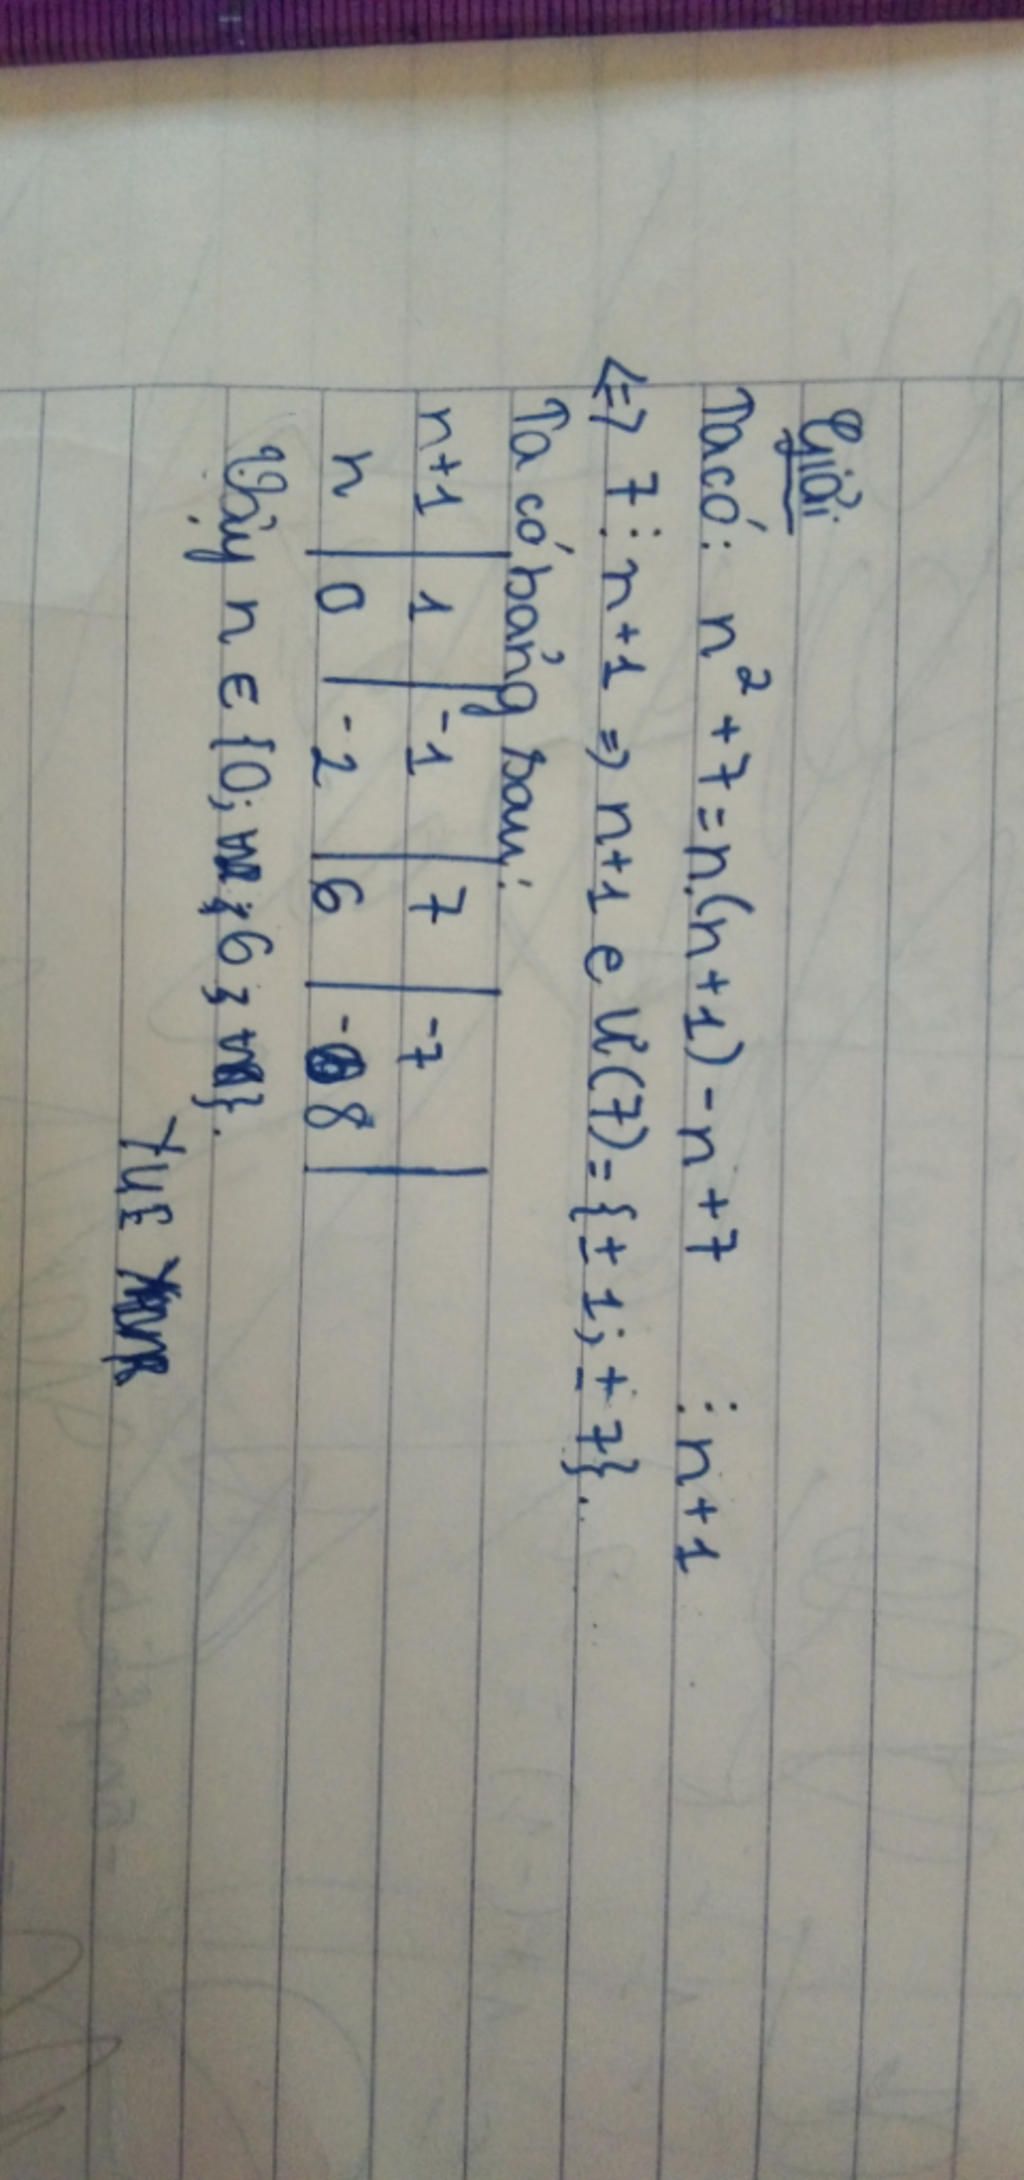 Giải
Ta có: n² + 7 = n.(n + 1) - n + 7 ⋮ n + 1
<=> 7 ⋮ n + 1 => n + 1 ∈ Ư(7) = {± 1; ± 7}.
Ta có bảng sau:
n+1 | 1 | -1 | 7 | -7 |
n | 0 | -2 | 6 | -8 |
Vậy n ∈ {0; ; 6; }.